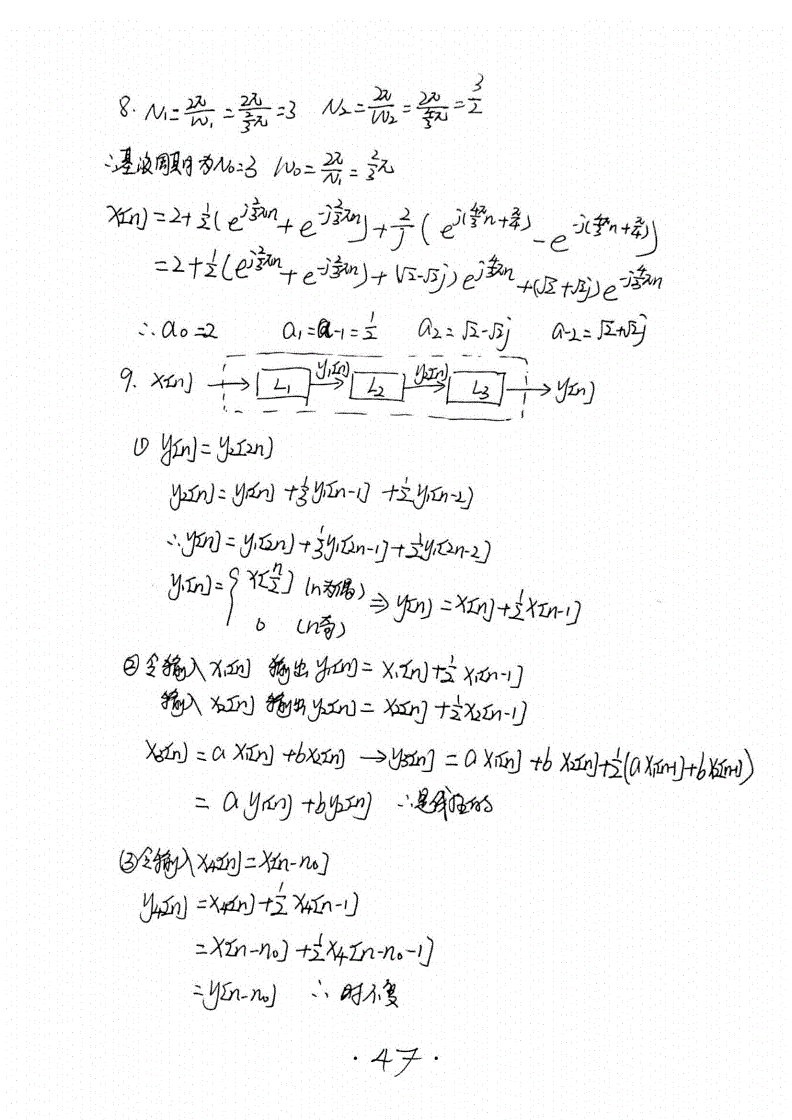 8. N₁=2π/ω₁=2π/(2/3 π)=3 N₂=2π/ω₂=2π/(4/3 π)=3/2
∴基波周期为N₀=3 ω₀=2π/N₁=2/3 π
x[n]=2+1/2(e^{j2/3πn}+e^{-j2/3πn})+2/j(e^{j(4π/3 n+π/4)}-e^{-j(4π/3 n+π/4)})
=2+1/2(e^{j2/3πn}+e^{-j2/3πn})+(√2-√2j)e^{j4/3πn}+(√2+√2j)e^{-j4/3πn}
∴a₀=2 a₁=a₋₁=1/2 a₂=√2-√2j a₋₂=√2+√2j
9. x[n] → L₁ y₁[n] → L₂ y₂[n] → L₃ → y[n]
① y[n]=y₂[2n]
y₂[n]=y₁[n]+1/3y₁[n-1]+1/2y₁[n-2]
∴y[n]=y₁[2n]+1/3y₁[2n-1]+1/2y₁[2n-2]
y₁[n]={x[n/2] (n为偶) ⇒ y[n]=x[n]+1/2x[n-1]
0 (n奇)
② 令输入x₁[n] 输出y₁[n]=x₁[n]+1/2x₁[n-1]
输入x₂[n] 输出y₂[n]=x₂[n]+1/2x₂[n-1]
x₃[n]=ax₁[n]+bx₂[n] →y₃[n]=ax₁[n]+bx₂[n]+1/2(ax₁[n-1]+bx₂[n-1])
=ay₁[n]+by₂[n] ∴是线性的
③ 令输入x₄[n]=x[n-n₀]
y₄[n]=x₄[n]+1/2x₄[n-1]
=x[n-n₀]+1/2x₄[n-n₀-1]
=y[n-n₀] ∴时不变
·47·